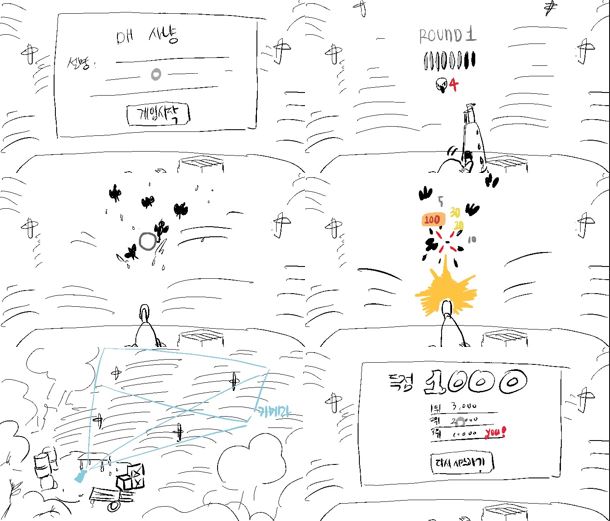 새 사냥
설명:
게임시작
ROUND 1
4
5
100
30
20
10
카메라
득점 1000
1위 3,000
2위 2,000
3위 1,000 YOU!
다시 시작하기